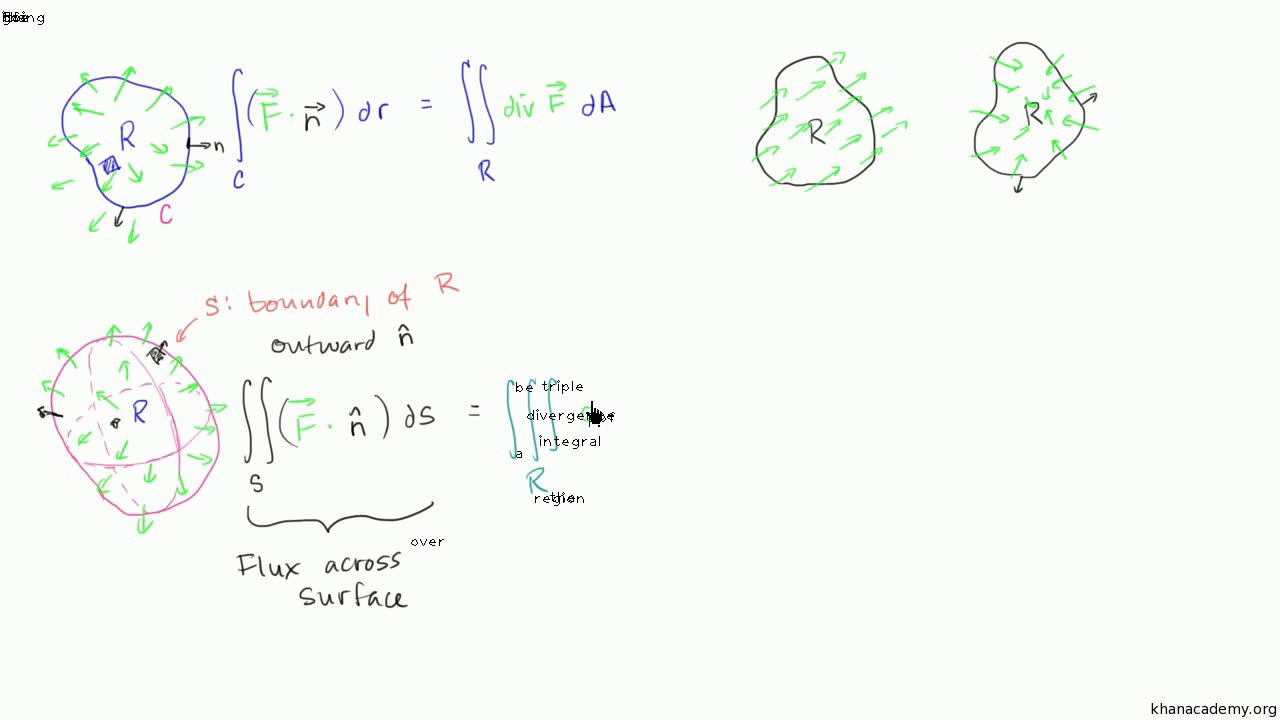 R
n
C
∫_C (F⃗ · n⃗) dr = ∬_R div F⃗ dA
R
R
S: boundary of R
outward n̂
R
∬_S (F⃗ · n̂) dS = ∭_R
be triple
integral
a
over
Flux across
surface
khanacademy.org